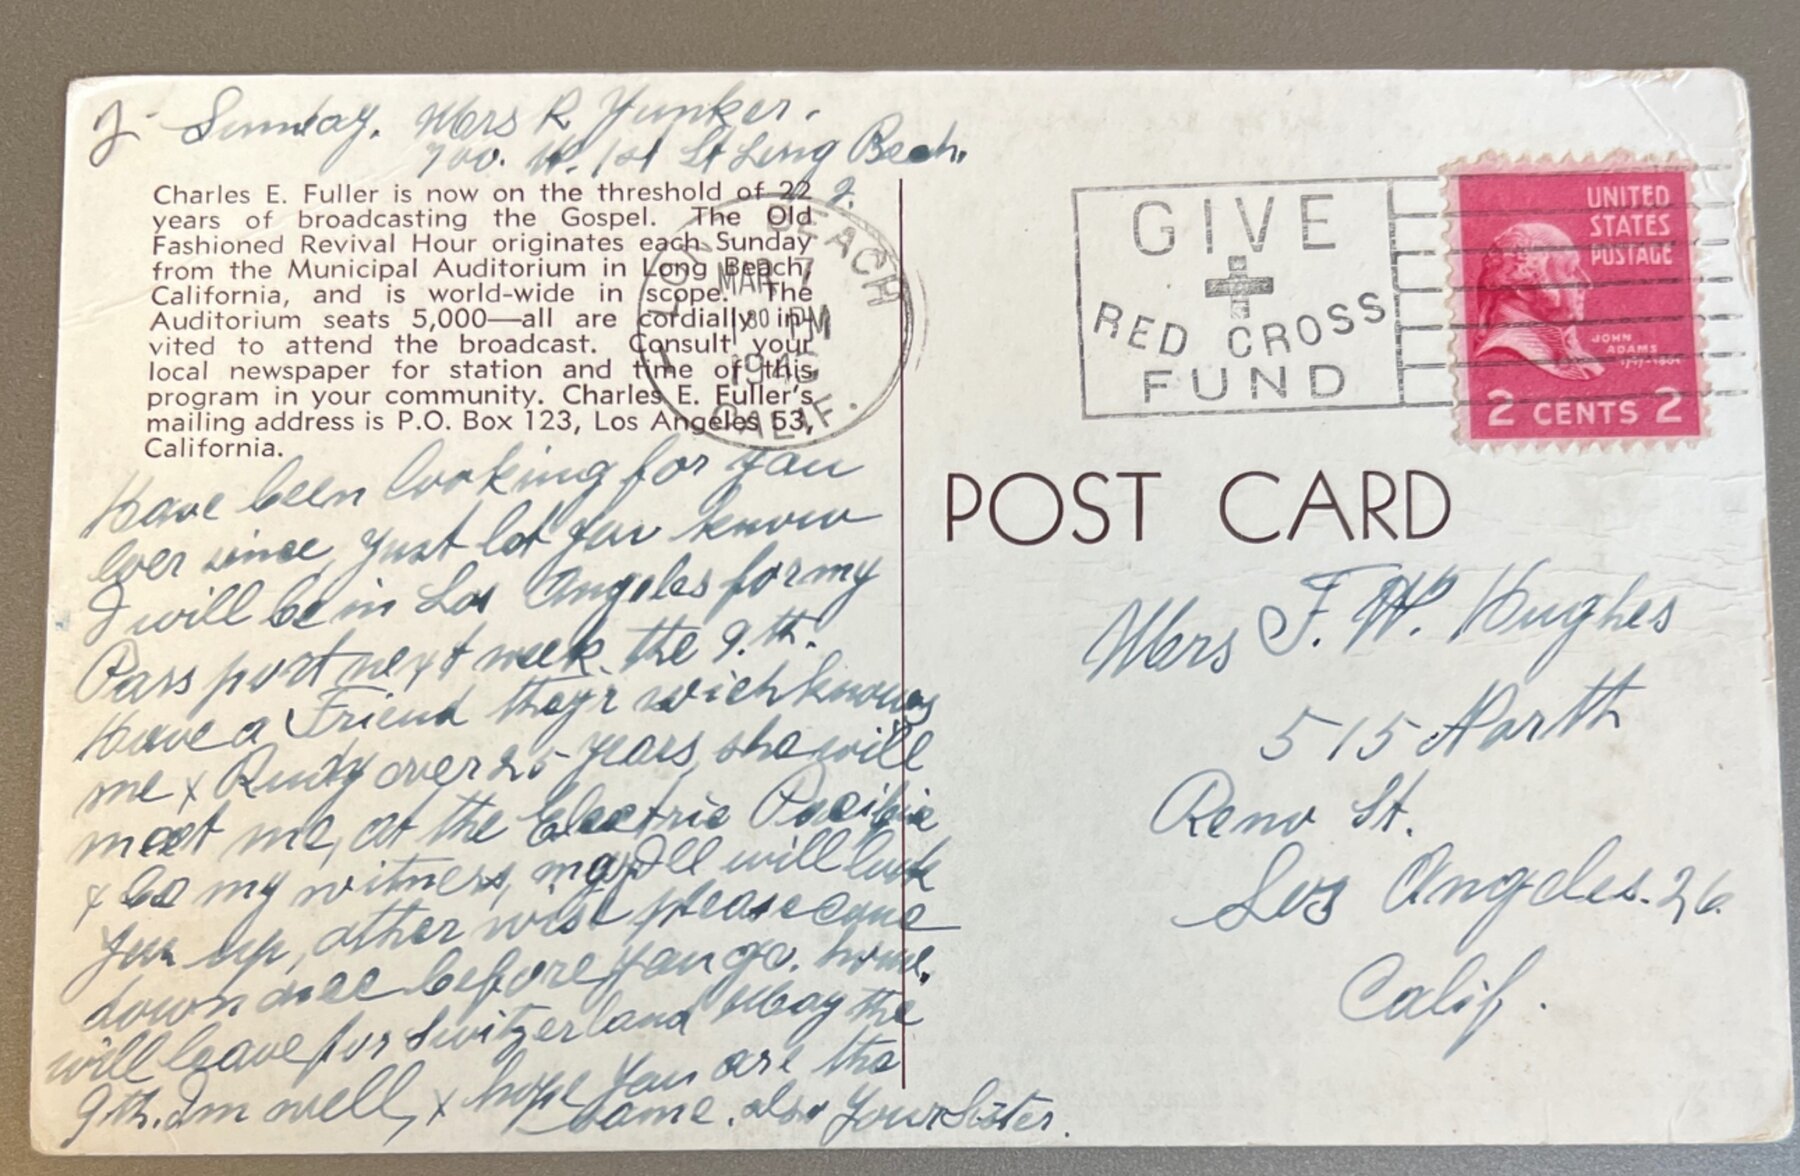 Sunday. Mrs R Yunker.
700. W. 1st St Long Beach.
Charles E. Fuller is now on the threshold of 22
years of broadcasting the Gospel. The Old
Fashioned Revival Hour originates each Sunday
from the Municipal Auditorium in Long Beach,
California, and is world-wide in scope. The
Auditorium seats 5,000—all are cordially in-
vited to attend the broadcast. Consult your
local newspaper for station and time of this
program in your community. Charles E. Fuller's
mailing address is P.O. Box 123, Los Angeles 53,
California.
LONG BEACH
MAR 7
1 30 PM
CALIF.
GIVE
RED CROSS
FUND
UNITED
STATES
POSTAGE
JOHN
ADAMS
1797-1801
2 CENTS 2
Have been looking for you
ever since, just let you know
I will be in Los Angeles for my
Pass port next week. the 9.th.
Have a Friend they'r wich knows
me x Rudy over 25 years, she will
meet me, at the Electric Pacific
x be my witness, will look
you up, other wise please come
down see before you go. home.
will leave for Switzerland May the
9th. Im well, x hope you are the
same. also Your Sister.
POST CARD
Mrs F. W. Hughes
515 North
Reno St.
Los Angeles. 26.
Calif.